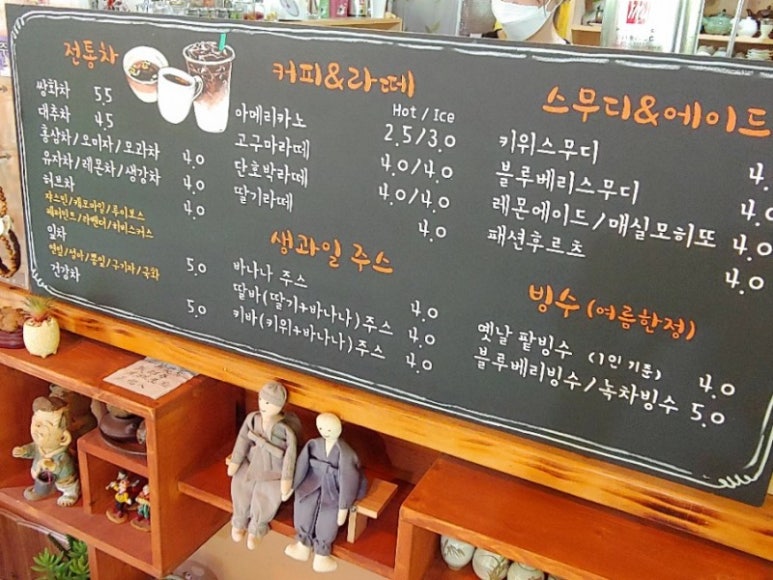 전통차
쌍화차 5.5
대추차 4.5
홍삼차/오미자/모과차 4.0
유자차/레몬차/생강차 4.0
허브차 4.0
쟈스민/캐모마일/루이보스
페퍼민트/라벤더/히비스커스
잎차 5.0
연잎/뽕잎/구기자/국화
건강차 5.0
커피&라떼
Hot / Ice
아메리카노 2.5/3.0
고구마라떼 4.0/4.0
단호박라떼 4.0/4.0
딸기라떼 4.0
생과일 주스
바나나 주스 4.0
딸바(딸기+바나나)주스 4.0
키바(키위+바나나)주스 4.0
스무디&에이드
키위스무디 4.
블루베리스무디 4.0
레몬에이드/매실모히또 4.0
패션후르츠 4.0
빙수 (여름한정)
옛날 팥빙수 (1인 기준) 4.0
블루베리빙수/녹차빙수 5.0